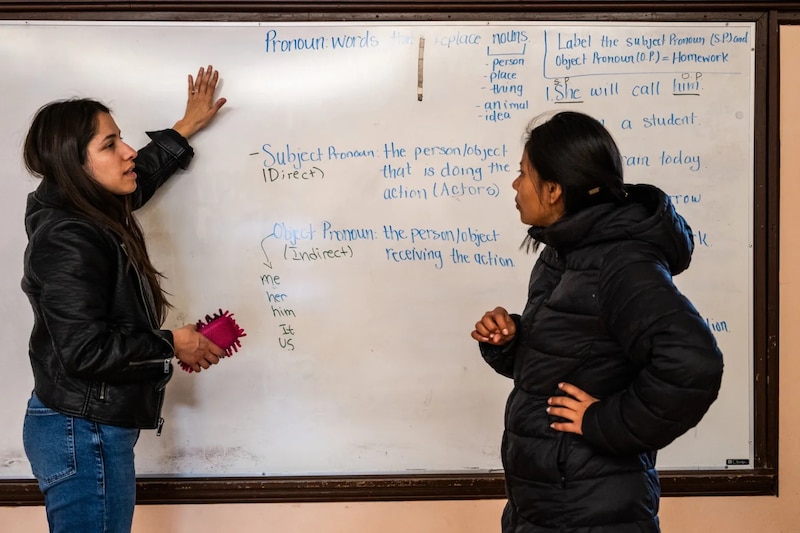 Pronoun: words replace nouns.
- person
- place
- thing
- animal
- idea
- Subject Pronoun: the person/object
(Direct) that is doing the
action (Actors)
Object Pronoun: the person/object
(Indirect) receiving the action
me
her
him
It
us
Label the subject Pronoun (S.P) and
Object Pronoun (O.P.) = Homework
S.P O.P
1. She will call him.
a student.
today.